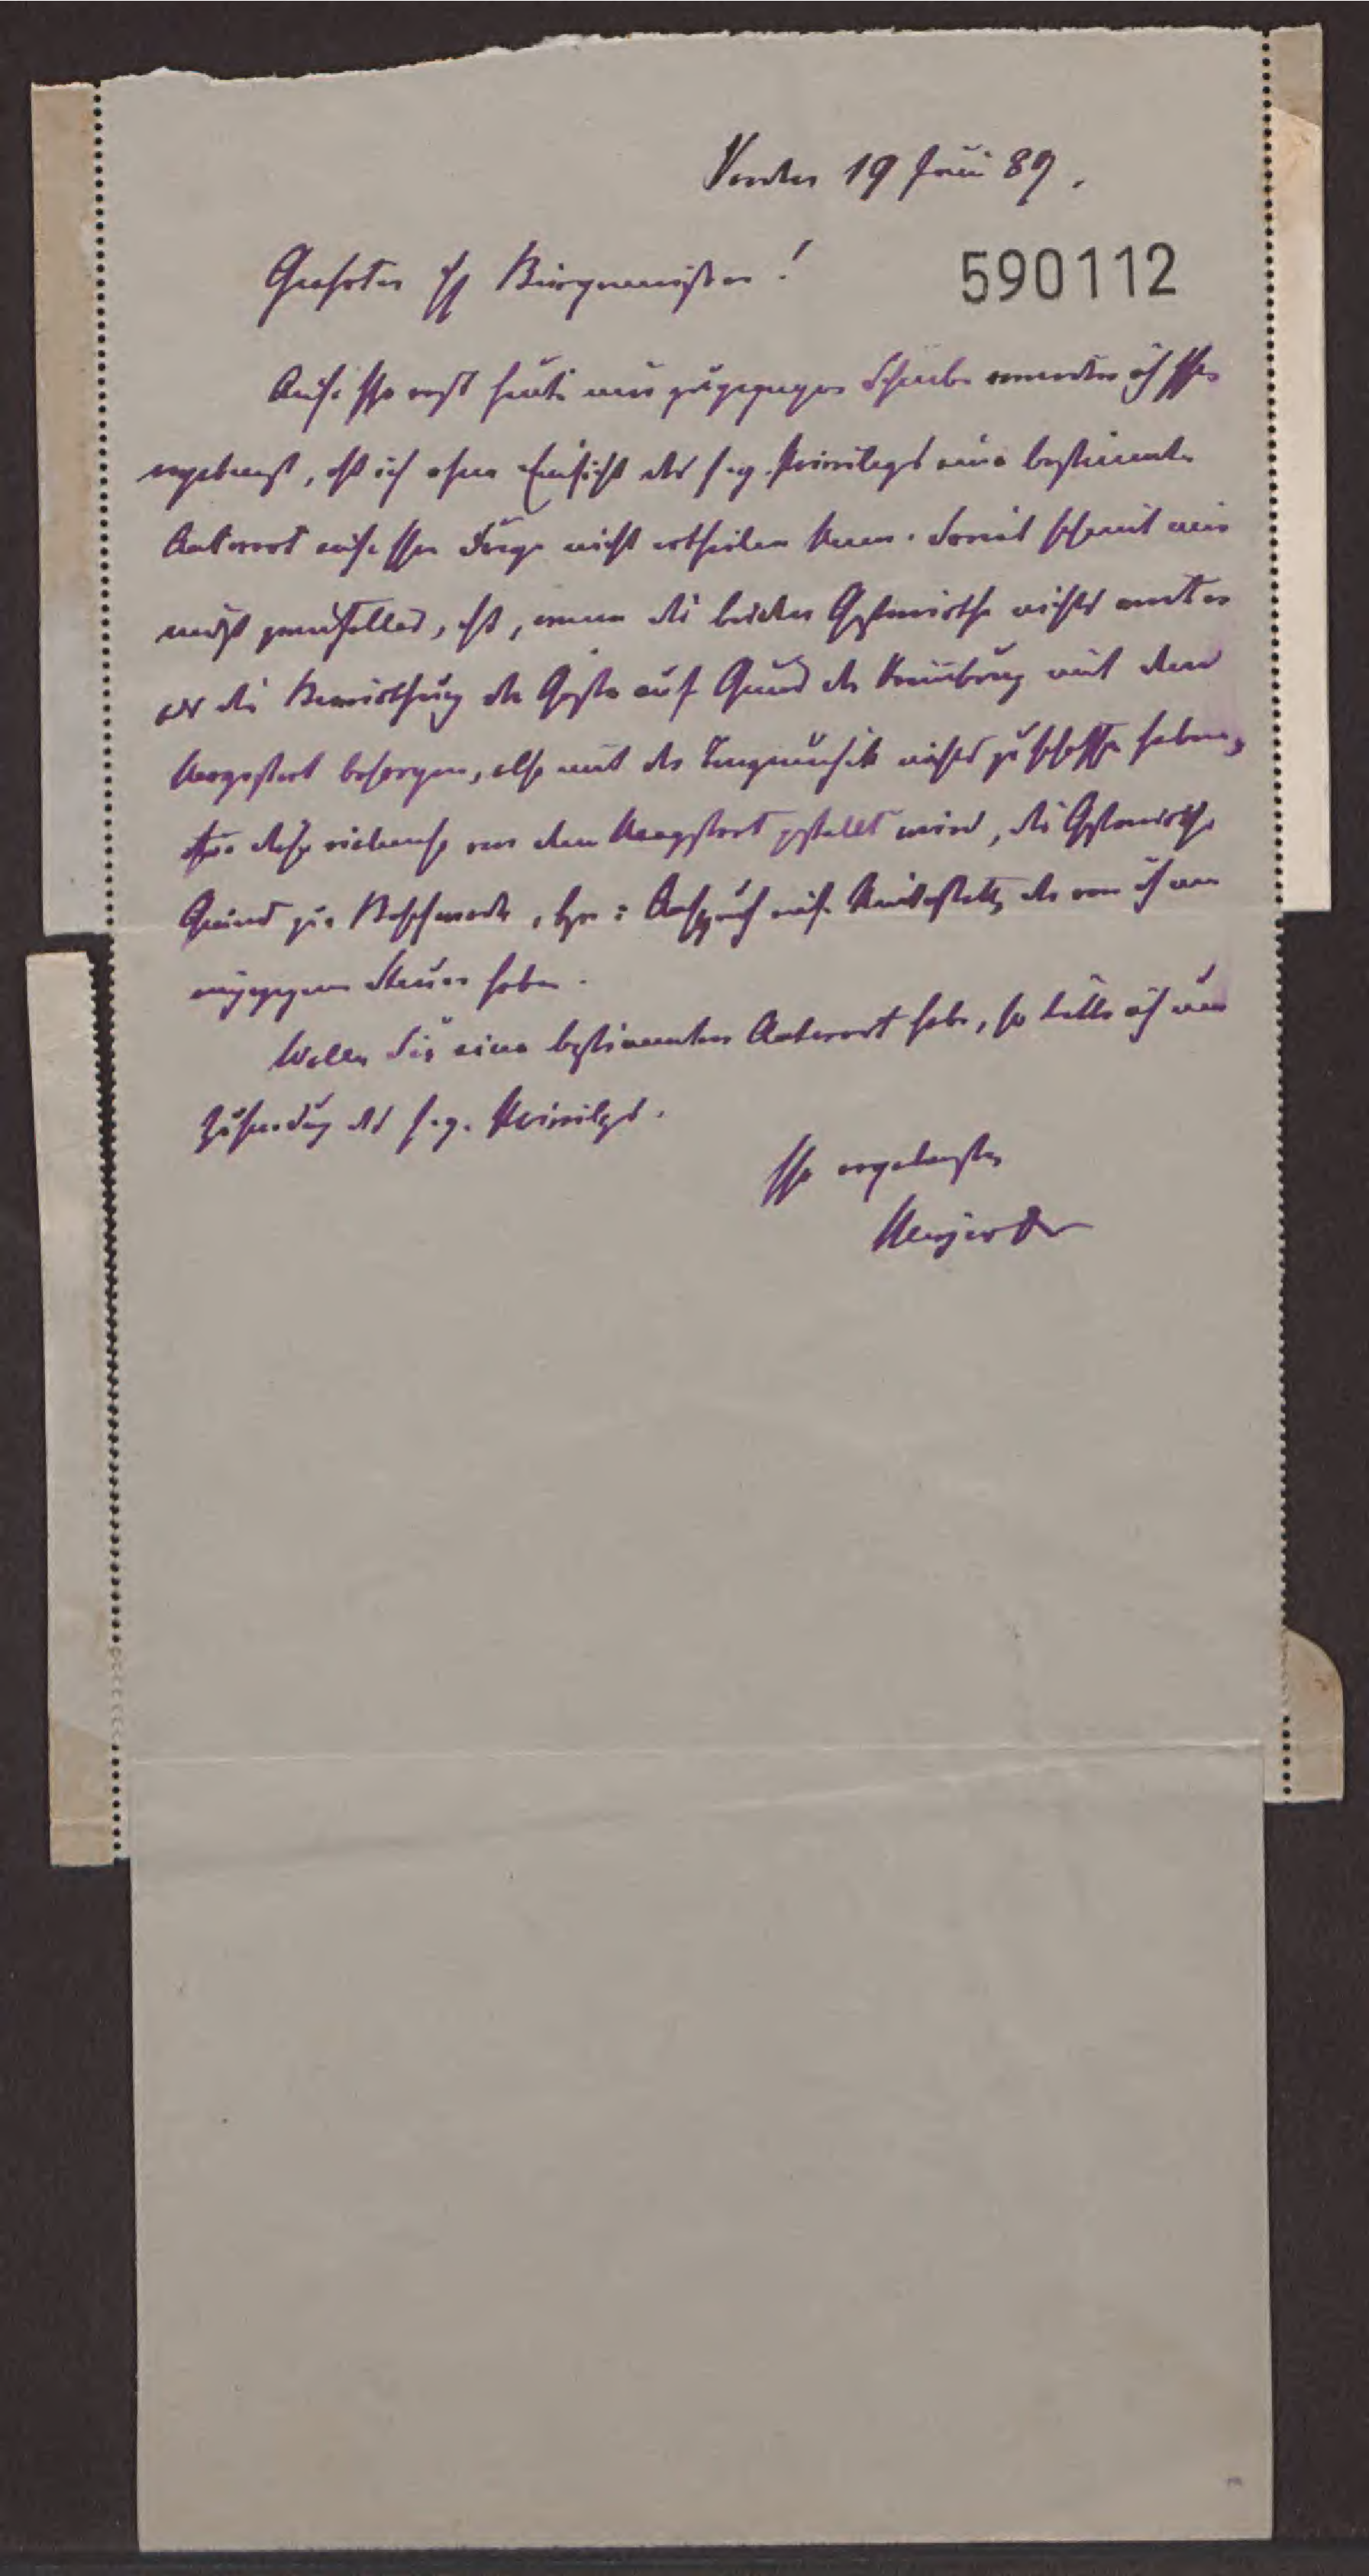 Verden 19 Juni 89.
Geehrter H Bürgermeister!
590112
Auf Ihr erst heute mir zugegangen Schreiben erwidere ich Ihnen
ergebenst, daß ich ohne Einsicht des s.g. Privilegs eine bestimmte
Antwort auf Ihre Frage nicht ertheilen kann. Soviel scheint mir
nicht zweifelhaft, daß, wenn die beiden Gastwirthe nichts weiter
als die Bewirthung der Gäste auf Grund der mit dem
besorgen, also mit der Tanzmusik nichts zu schaffen haben,
diese von dem gestellt wird, die Gastwirthe
Grund zur Beschwerde, Anspruch auf der von ihnen
Steuer haben.
Wollen Sie eine bestimmtere Antwort haben, so bitte ich um
Zusendung des s.g. Privilegs.
Ihr ergebenster